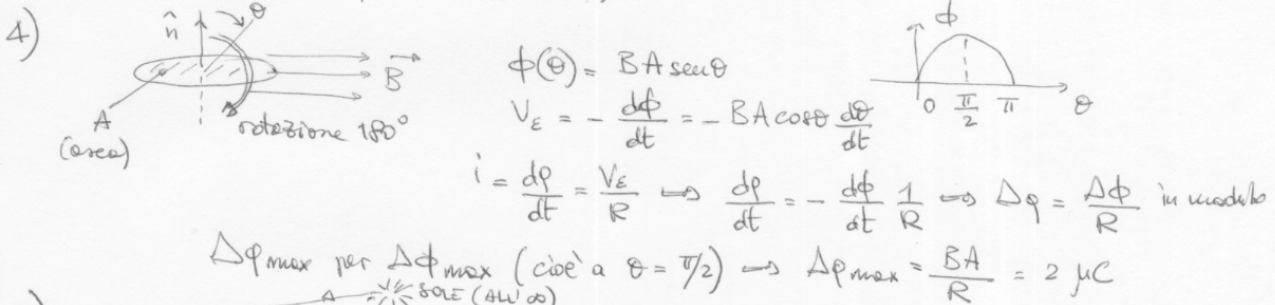 4)
n̂ θ
B⃗
A
(area)
rotazione 180°
ϕ(θ) = BA senθ
V_ε = - dϕ/dt = - BA cosθ dθ/dt
ϕ
0 π/2 π θ
i = dq/dt = V_ε/R ⟿ dq/dt = - dϕ/dt 1/R ⟿ Δq = Δϕ/R in modulo
Δq max per Δϕ max (cioè a θ = π/2) ⟿ Δq max = BA/R = 2 μC
SOLE (ALL'∞)